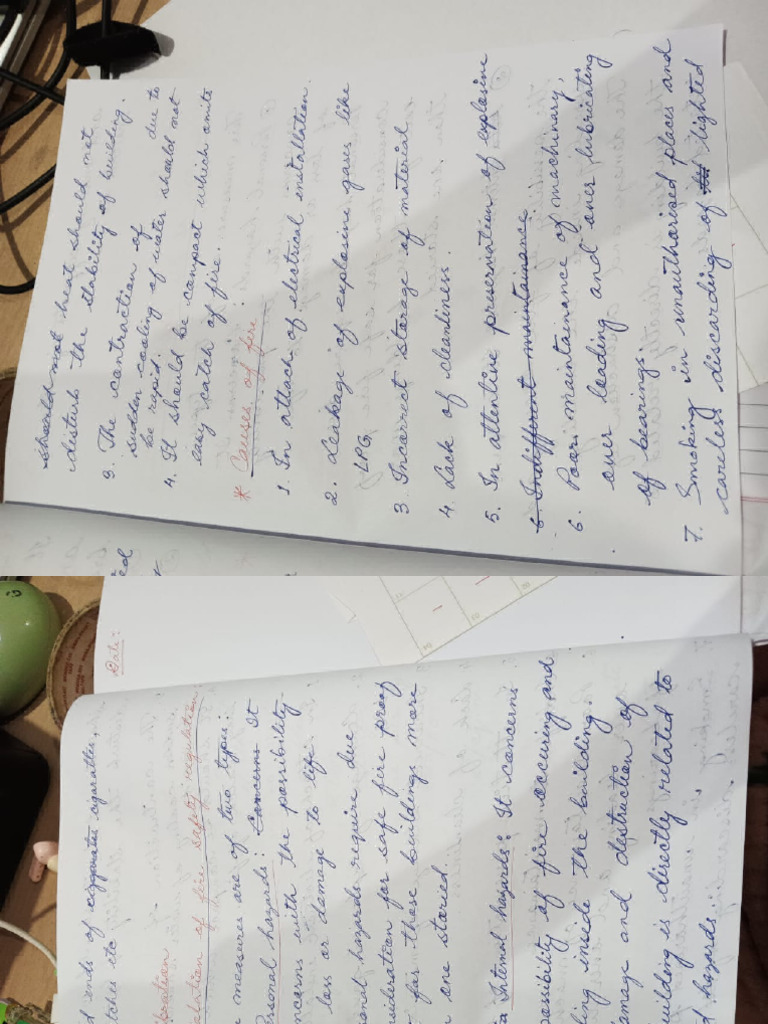 should not heat should not
disturb the stability of building.
3. The contraction of due to
sudden cooling of water should not
be rapid.
4. It should be compact which omite
easy catch of fire.
* Causes of fire :
1. In attach of electrical installation.
2. Leakage of explosive gases like
LPG
3. Incorrect storage of material
4. Lack of cleanliness.
5. In attentive preservation of explosive
6 Indifferent maintainance
6. Poor maintainance of machinary,
over loading and over lubricating
of bearings.
7. Smoking in unauthorised places and
careless discarding of lighted
Date:
ends of cigarattes,
etc
of fire safety regulation
measures are of two types:
hazards: Concerns It
with the possibility
loss or damage to life
hazards require due
for safe fire proof
for those buildings more
one storied.
Internal hazards: It concerns
possibility of fire occuring and
inside the building.
and destruction of
is directly related to
hazards: